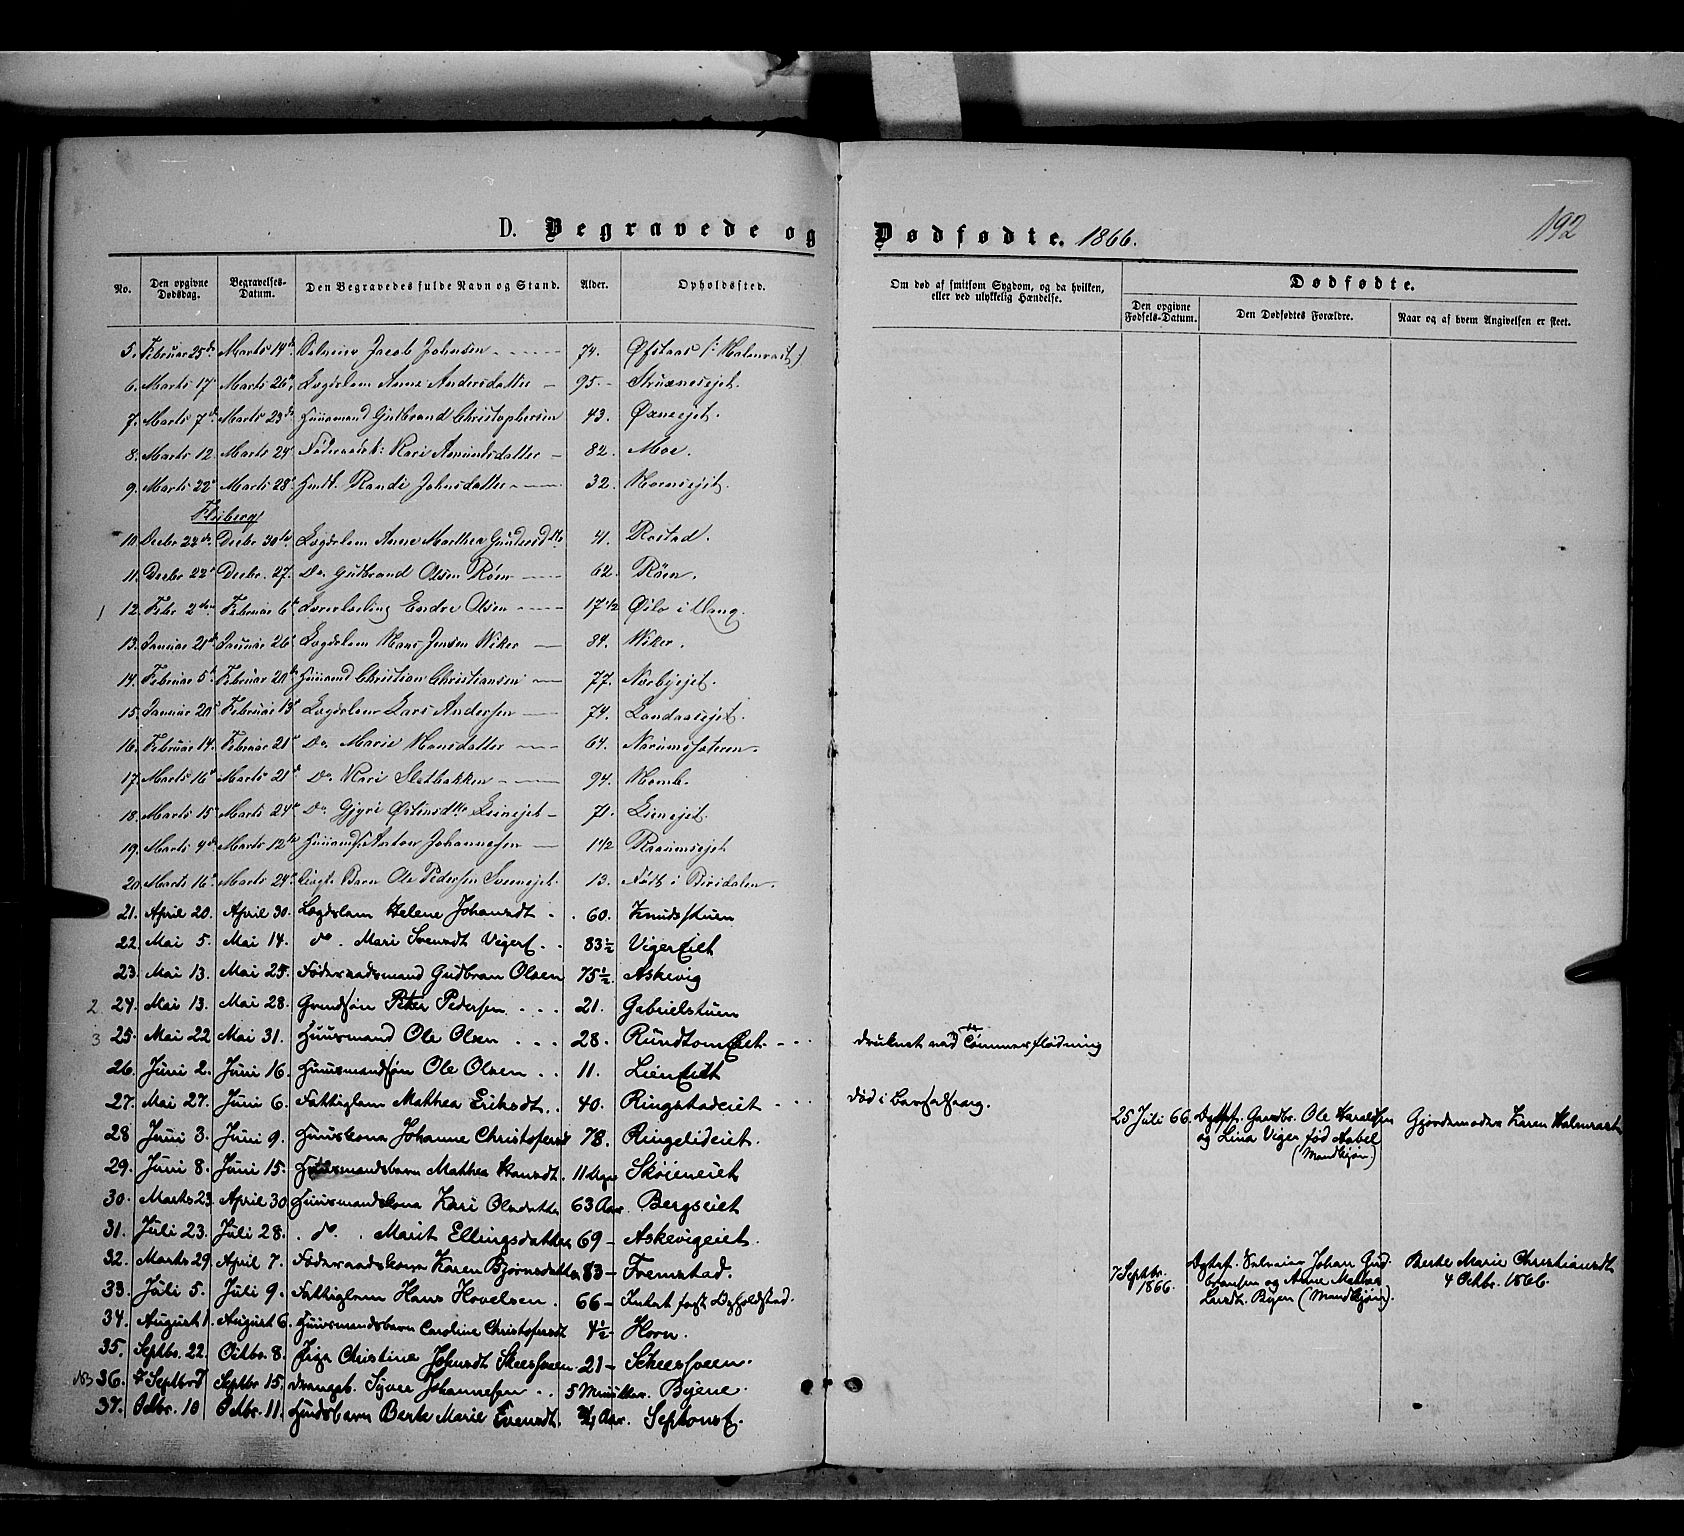 D. Begravede og Dødfødte. 1866.
192
No.
Den opgivne Dødsdag.
Begravelses-Datum.
Den Begravedes fulde Navn og Stand.
Alder.
Opholdssted.
Om død af smitsom Sygdom, og da hvilken, eller ved ulykkelig Hændelse.
Dødfødte.
Den opgivne Fødsels-Datum.
Den Dødfødtes Forældre.
Naar og af hvem Angivelsen er skeet.
5. Februar 25de Marts 14de Jacob Johnsen 74. Øfstaas
6. Marts 17 Marts 26 Lægdslem Anne Andersdatter 95. Struxnesejet.
7. Marts 7de Marts 23de Huusmand Gulbrand Christophersen 43. Øxneejet.
8. Marts 12 Marts 24 Kari Amundsdatter 82. Moe.
9. Marts 22 Marts 28 Randi Johnsdatter 32. Hornsejet.
Fluberg
10. Decbr 22de Decbr 30te Lægdslem Anne Marthea 41. Rostad.
11. Decbr 22 Decbr. 27. Do. Gulbrand Olsen Røen 62. Røen.
1 12. Febr 2den Februar 6te Endre Olsen 17 1/2 i Vang
13. Januar 21de Januar 26 Lægdslem Hans Jensen Wiker 84. Wiker.
14. Februar 5te Februar 20de Huusmand Christian Christiansen 77. Norbyejet.
15. Januar 20 Februar 13 Lægdslem Lars Andersen 74. Landaasejet.
16. Februar 14. Februar 21 Do. Marie Hansdatter 64. Narumsæteren.
17. Marts 16 Marts 21 Do. Kari Sletbakken 94. Homb.
18. Marts 15 Marts 24 Do. Gjyri Østensdtr Lienejet 71. Lienejet.
19. Marts 4de Marts 12te Anton Johannesen 1 1/2 Raaumsejet
20. Marts 16 Marts 24 Barn Ole Pedersen 13. Født i Biridalen.
21. April 20. April 30. Lægdslem Helene Johansdt. 60. Knudsstuen
22. Mai 5. Mai 14. do. Mari Svensdt Vigers. 83 1/2 Vigereiet
23. Mai 13. Mai 25. Føderaadsmand Gudbran Olsen 75 1/2 Askevig
2 24. Mai 13. Mai 28. Peter Pedersen 21. Gabrielstuen
3 25. Mai 22 Mai 31. Huusmand Ole Olsen 28. Rundtomeiet. druknet ved Tømmerflødning
26. Juni 2. Juni 16. Huusmandssøn Ole Olsen 11. Lieneiet
27. Mai 27. Juni 6. Fattiglem Mathea Eriksdt. 40. Ringstadeiet død i Barselsæng.
28 Juni 3. Juni 9. Huuskona Johanne Christofersdt 78. Ringelideiet.
25 Juli 66. Ole Haraldsen
og Lina Viger fød Aabel
(Mandkjøn)
Gjordemoder Karen Halmrast
29. Juni 8. Juni 15. Huusmandsbarn Mathea Hansdt. 11 Uger Skøieneiet
30. Marts 23. April 30 Huusmandskona Kari Olsdatter 63 Aar. Bergseiet
31. Juli 23. Juli 28. do. Marit Ellingsdatter 69 Askevigeiet.
32. Marts 29 April 7. Føderaadskona Karen Bjørnsdatter 83 Fremstad.
33. Juli 5. Juli 9. Fattiglem Hans Hovelsen. 66 Intet fast Opholdsted.
7 Septbr. 1866. Johan Gud-
bransen og Anne Mathea
(Mandkjøn).
Berte Marie Christiansdt
4 Octbr. 1866.
34. August 1. August 6. Huusmandsbarn Caroline Christofersdt 4 1/2 Horn.
35. Septbr. 22. Octbr. 8. Pige Christine Johansdt Skeesveen. 21 Skeesveen.
36. Septbr 7 Septbr 15. drengeb. Syver Johannesen 5 Minutter. Byene.
37. Octbr. 10 Octbr. 11. Berte Marie Evensdt. 3/4 Aar.